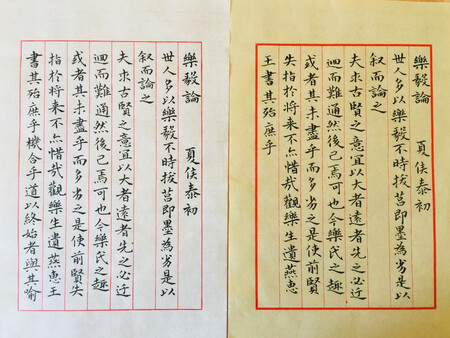 樂毅論 夏侯泰初
世人多以樂毅不時拔莒即墨為劣是以
叙而論之
夫求古賢之意宜以大者遠者先之必迂
迴而難通然後已焉可也今樂氏之趣
或者其未盡乎而多劣之是使前賢
失指於将来不亦惜哉觀樂生遺燕惠
王書其殆庶乎
樂毅論 夏侯泰初
世人多以樂毅不時拔莒即墨為劣是以
叙而論之
夫求古賢之意宜以大者遠者先之必迂
迴而難通然後已焉可也今樂氏之趣
或者其未盡乎而多劣之是使前賢失
指於将来不亦惜哉觀樂生遺燕惠王
書其殆庶乎機合乎道以終始者與其喻